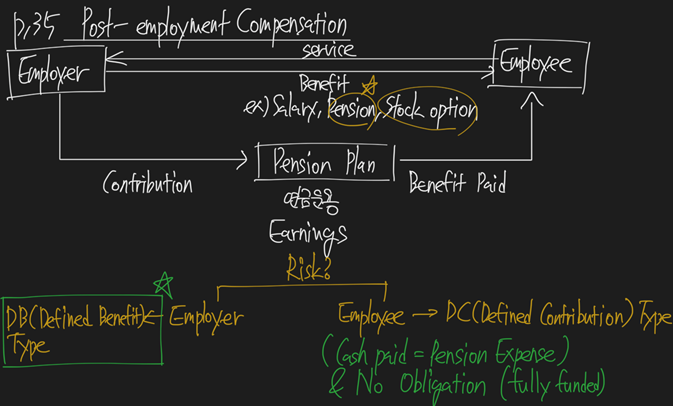 p.35 Post-employment Compensation
service
Employer
Employee
Benefit
ex) Salary, Pension, Stock option
Pension Plan
Contribution
Benefit Paid
연금운용
Earnings
Risk?
DB(Defined Benefit) Type
Employer
Employee → DC(Defined Contribution) Type
(Cash paid = Pension Expense)
& No Obligation (fully funded)